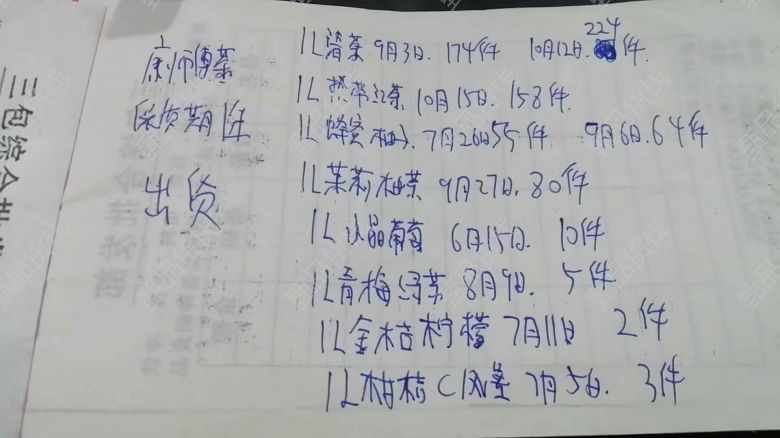 康师傅茶
保质期1年
出货
1L清茶 9月3日. 174件 10月12日. 224件.
1L热带红茶 10月15日. 158件.
1L蜂蜜柚子. 7月26日55件 9月6日. 64件
1L茉莉柚茶 9月27日. 80件
1L水晶葡萄 6月15日. 10件
1L青梅绿茶 8月9日. 5件
1L金桔柠檬 7月11日 2件
1L柑桔C 7月5日. 3件
三包综合